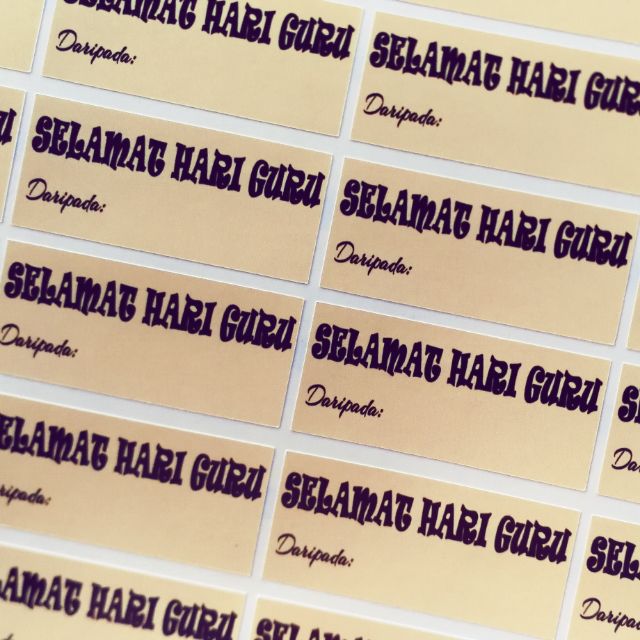 SELAMAT HARI GURU
Daripada:
SELAMAT HARI GURU
Daripada:
SELAMAT HARI GURU
Daripada:
SELAMAT HARI GURU
Daripada:
SELAMAT HARI GURU
Daripada:
SELAMAT HARI GURU
Daripada:
SELAMAT HARI GURU
Daripada:
SELAMAT HARI GURU
Daripada:
SELAMAT HARI GURU
SELAMAT HARI GURU